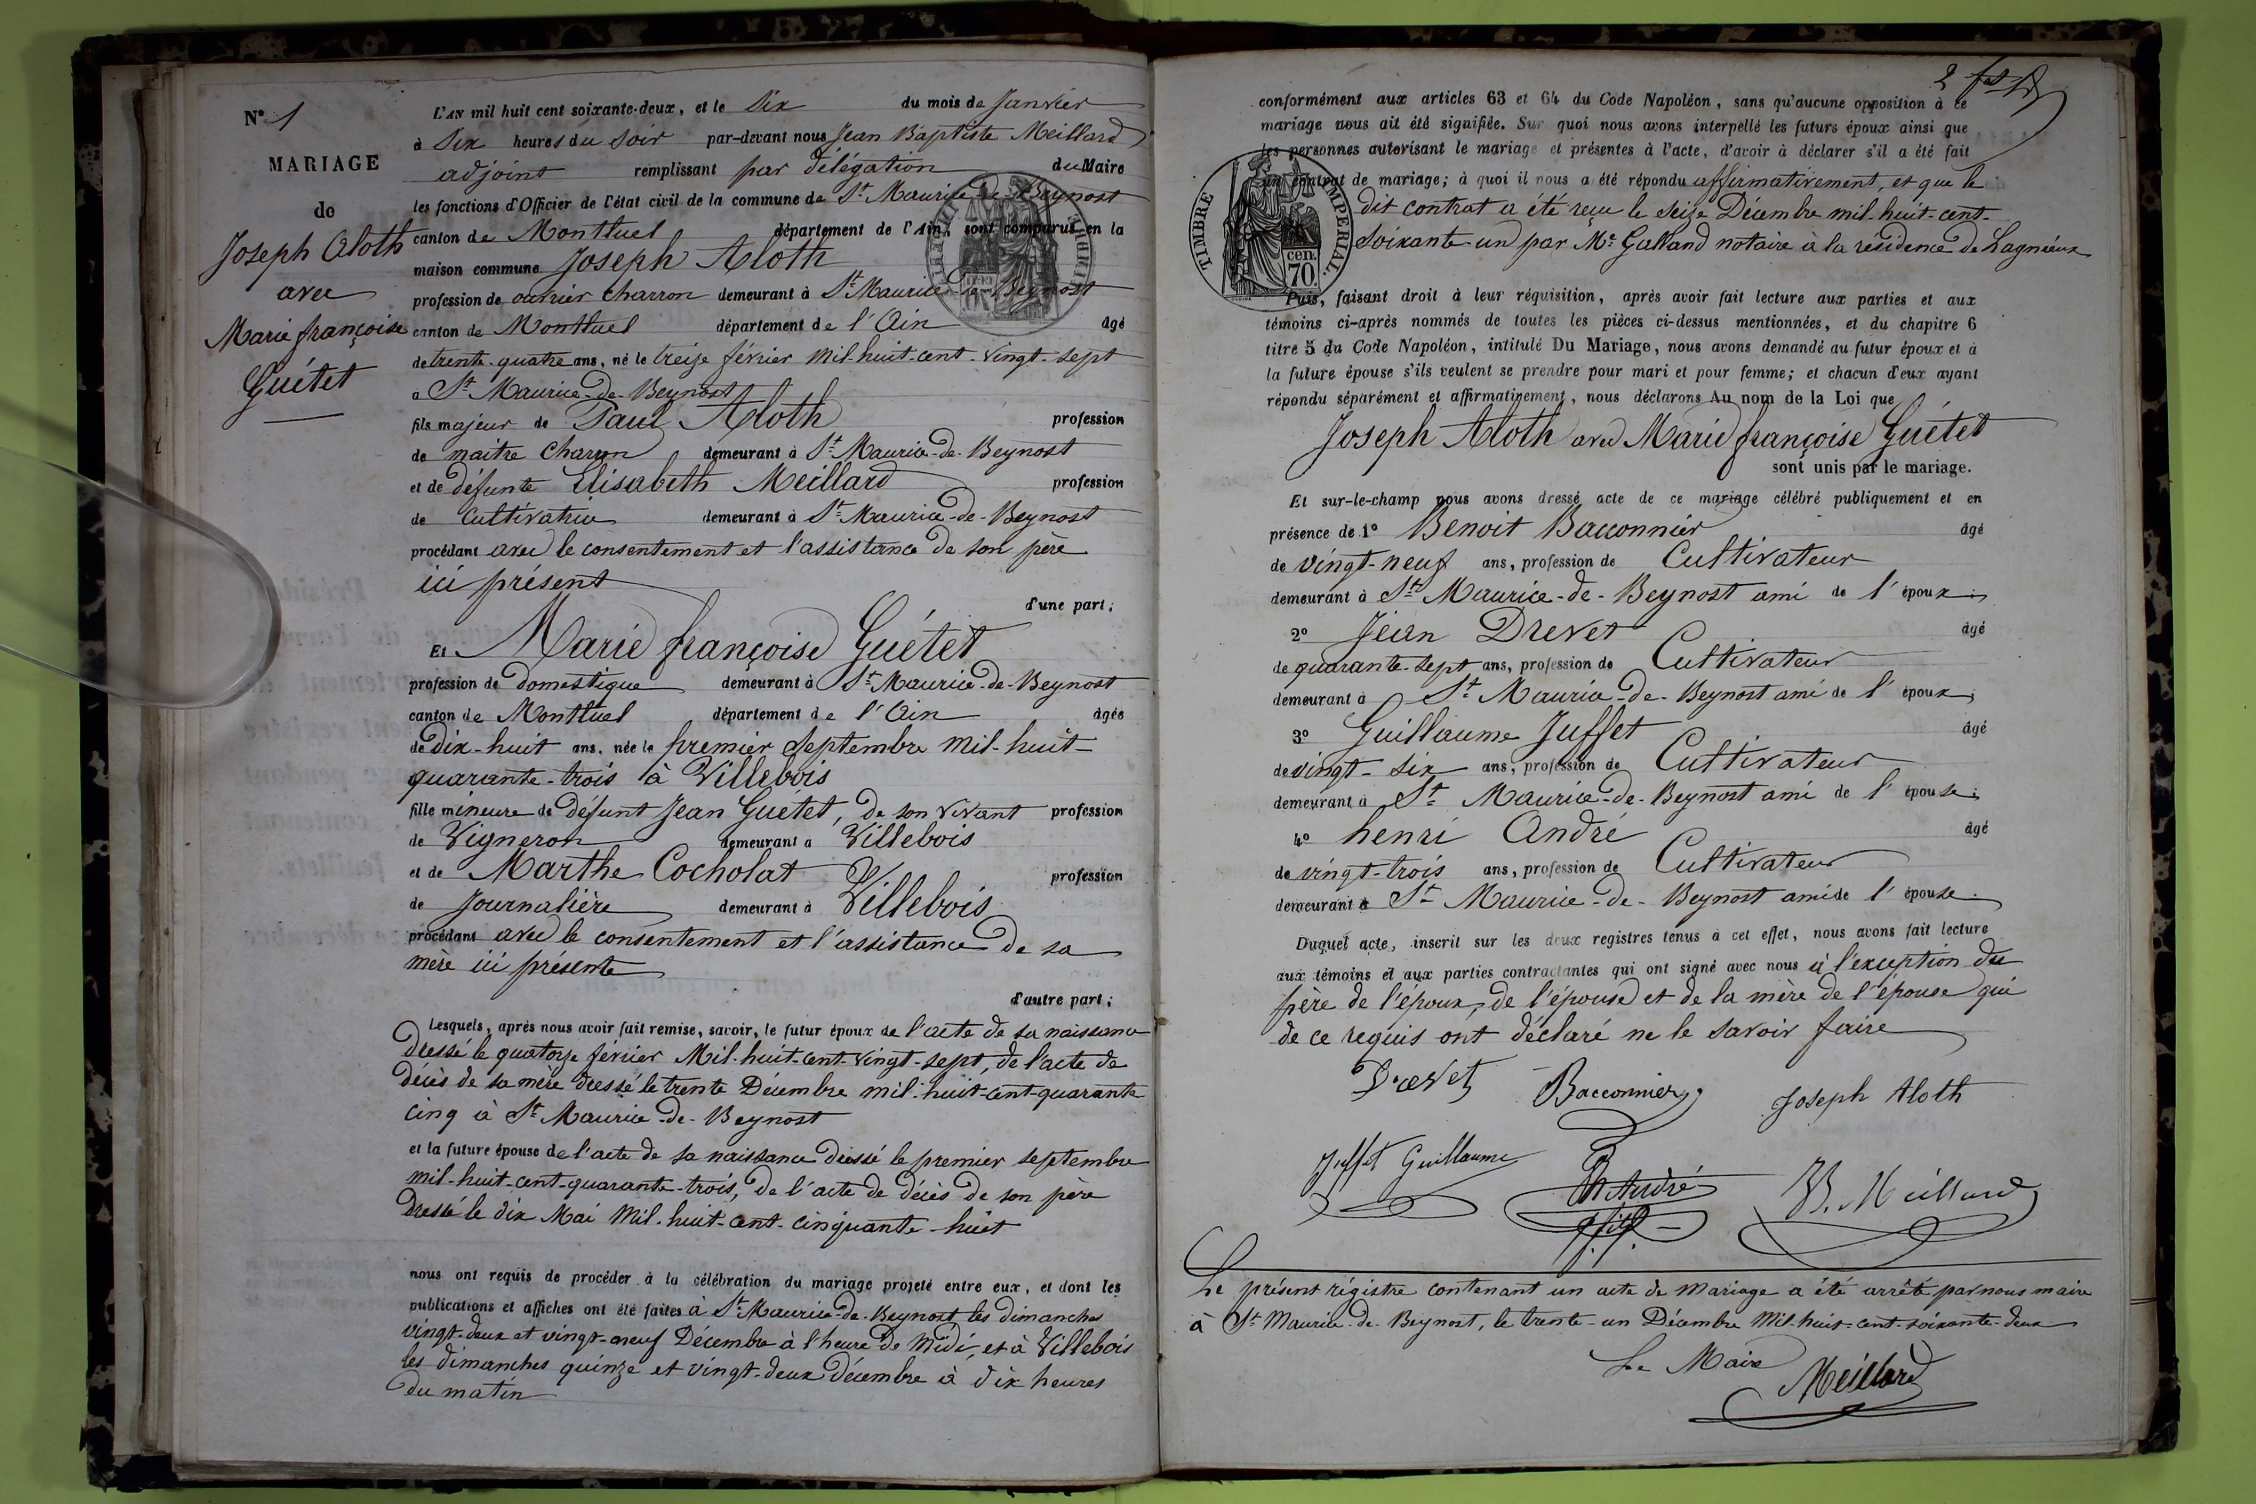 N° 1
MARIAGE
de
Joseph Aloth
avec
Marie françoise
Guétet
L'AN mil huit cent soixante-deux, et le Six du mois de Janvier
à Six heures du soir par-devant nous Jean Baptiste Meillard
adjoint remplissant par délégation du Maire
les fonctions d'Officier de l'état civil de la commune de St Maurice de Beynost
canton de Montluel département de l'Ain, sont comparus en la
maison commune Joseph Aloth
profession de ouvrier charron demeurant à St Maurice de Beynost
canton de Montluel département de l'Ain âgé
de trente-quatre ans, né le treize février Mil-huit-cent-vingt-sept
à St Maurice-de-Beynost
fils majeur de Paul Aloth profession
de maitre charron demeurant à St Maurice-de-Beynost
et de défunte Elisabeth Meillard profession
de Cultivatrice demeurant à St Maurice-de-Beynost
procédant avec le consentement et l'assistance de son père
ici présent
d'une part;
Et Marie françoise Guétet
profession de domestique demeurant à St Maurice-de-Beynost
canton de Montluel département de l'Ain âgée
de Dix-huit ans, née le premier Septembre Mil-huit-
quarante-trois à Villebois
fille mineure de défunt Jean Guétet, de son vivant profession
de Vigneron demeurant à Villebois
et de Marthe Cocholat profession
de Journalière demeurant à Villebois
procédant avec le consentement et l'assistance de sa
mère ici présente
d'autre part;
Lesquels, après nous avoir fait remise, savoir, le futur époux de l'acte de sa naissance
Dressé le quatorze février Mil-huit-cent-vingt-sept, de l'acte de
décès de sa mère dressé le trente Décembre mil-huit-cent-quarante
cinq à St Maurice-de-Beynost
et la future épouse de l'acte de sa naissance dressé le premier septembre
mil-huit-cent-quarante-trois, de l'acte de décès de son père
dressé le dix Mai Mil-huit-cent-cinquante-huit
nous ont requis de procéder à la célébration du mariage projeté entre eux, et dont les
publications et affiches ont été faites à St Maurice-de-Beynost les dimanches
vingt-deux et vingt-neuf Décembre à l'heure de Midi, et à Villebois
les dimanches quinze et vingt-deux décembre à dix heures
du matin
2
conformément aux articles 63 et 64 du Code Napoléon, sans qu'aucune opposition à ce
mariage nous ait été signifiée. Sur quoi nous avons interpellé les futurs époux ainsi que
les personnes autorisant le mariage et présentes à l'acte, d'avoir à déclarer s'il a été fait
un contrat de mariage; à quoi il nous a été répondu affirmativement, et que le
dit contrat a été reçu le seize Décembre mil-huit-cent-
soixante-un par Me Galland notaire à la résidence de Lagnieux
TIMBRE IMPERIAL.
cen.
70.
Puis, faisant droit à leur réquisition, après avoir fait lecture aux parties et aux
témoins ci-après nommés de toutes les pièces ci-dessus mentionnées, et du chapitre 6
titre 5 du Code Napoléon, intitulé Du Mariage, nous avons demandé au futur époux et à
la future épouse s'ils veulent se prendre pour mari et pour femme; et chacun d'eux ayant
répondu séparément et affirmativement, nous déclarons Au nom de la Loi que
Joseph Aloth avec Marie françoise Guétet
sont unis par le mariage.
Et sur-le-champ nous avons dressé acte de ce mariage célébré publiquement et en
présence de 1° Benoit Bacconnier âgé
de vingt-neuf ans, profession de Cultivateur
demeurant à St Maurice-de-Beynost ami de l'époux;
2° Jean Drevet âgé
de quarante-sept ans, profession de Cultivateur
demeurant à St Maurice-de-Beynost ami de l'époux;
3° Guillaume Juffet âgé
de vingt-six ans, profession de Cultivateur
demeurant à St Maurice-de-Beynost ami de l'épouse;
4° henri André âgé
de vingt-trois ans, profession de Cultivateur
demeurant à St Maurice-de-Beynost ami de l'épouse.
Duquel acte, inscrit sur les deux registres tenus à cet effet, nous avons fait lecture
aux témoins et aux parties contractantes qui ont signé avec nous à l'exception du
père de l'époux, de l'épouse et de la mère de l'épouse qui
de ce requis ont déclaré ne le savoir faire
Drevet Bacconnier Joseph Aloth
Juffet Guillaume h André JB. Meillard
Le présent régistre contenant un acte de Mariage a été arrêté par nous maire
à St Maurice-de-Beynost, le trente-un Décembre Mil-huit-cent-soixante-deux
Le Maire
Meillard